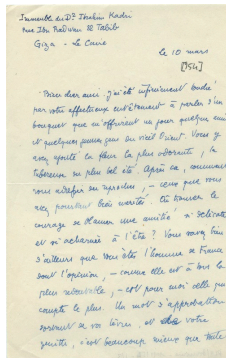 Immeuble du Dr Ibrahim Kadri
Rue Ibn Radwan El Tabib
Giza - Le Caire
le 10 mars
[54]
Bien cher ami, j'ai été infiniment touché
par votre affectueux entêtement à parler d'un
bouquet que m'offrirent un jour quelques amis
et quelques jeunes gens du vieil Orient. Vous y
avez ajouté la fleur la plus odorante, la
tubéreuse du plus bel été. Après ça, comment
vous adresser un reproche, – ceux que vous
avez pourtant bien mérité. Où trouver le
courage de blamer une amitié si délicate
et si acharnée à l'être? Vous savez bien
d'ailleurs que vous êtes l'homme de France
dont l'opinion, – comme elle est à tous la
plus redoutable, – est pour moi celle qui
compte le plus. Un mot d'approbation
venant de vos lèvres, et de votre
, c'est beaucoup mieux que toute